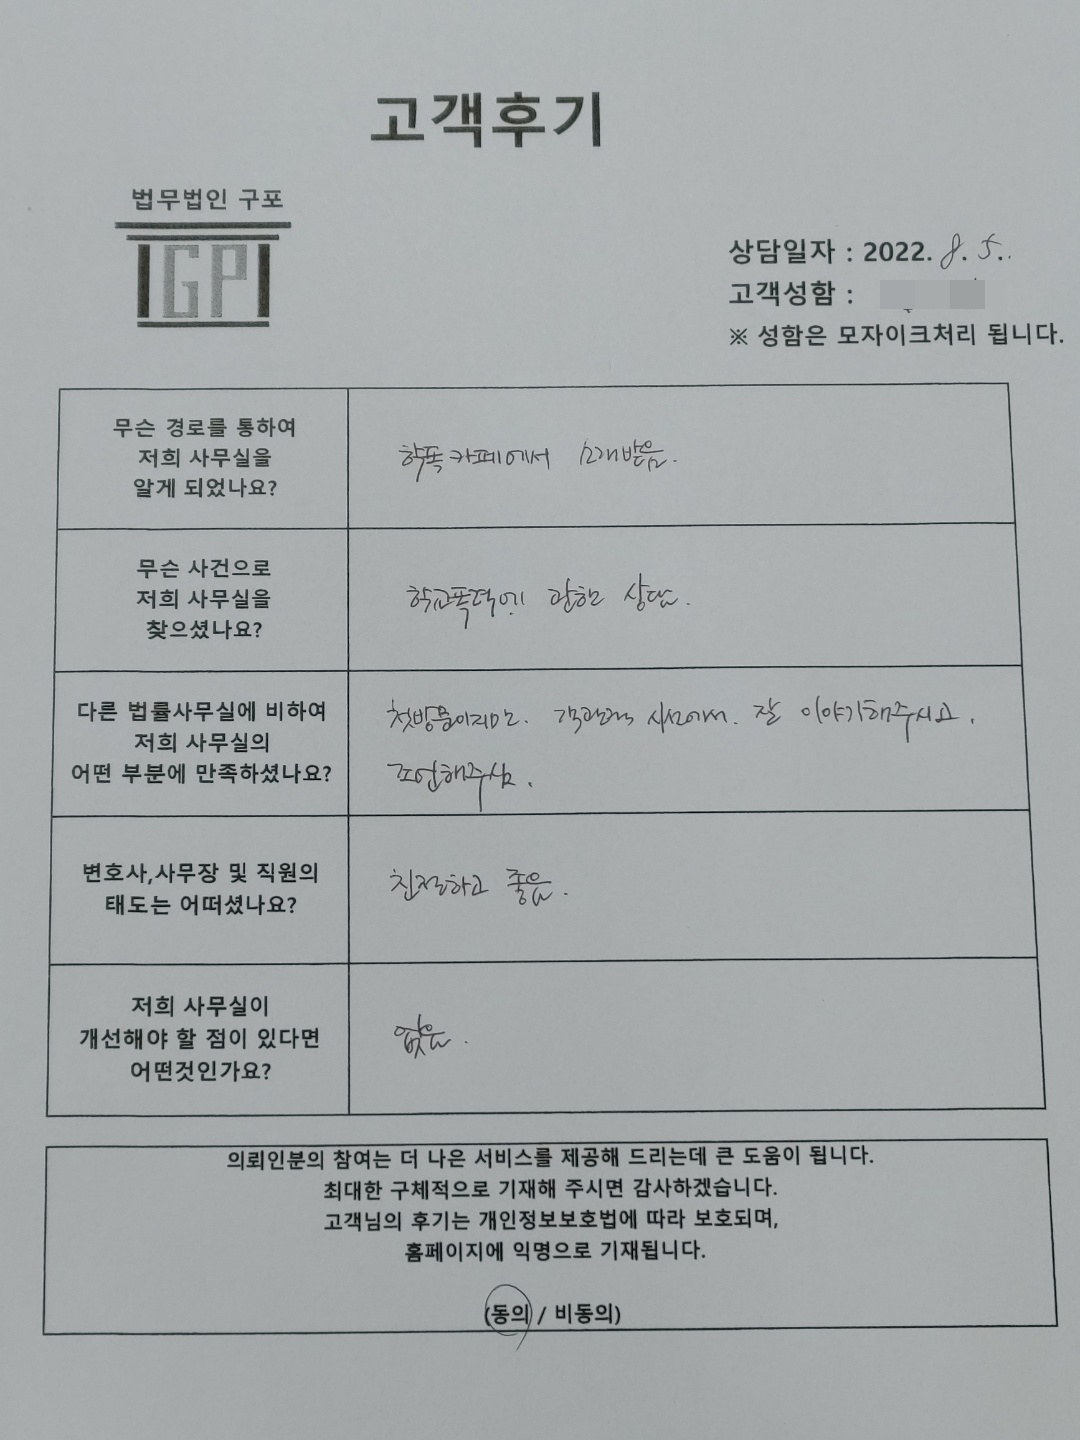 고객후기
법무법인 구포
IGPI
상담일자 : 2022. 8. 5.
고객성함 :
※ 성함은 모자이크처리 됩니다.
무슨 경로를 통하여
저희 사무실을
알게 되었나요?
학폭카페에서 소개받음.
무슨 사건으로
저희 사무실을
찾으셨나요?
학교폭력에 관한 상담.
다른 법률사무실에 비하여
저희 사무실의
어떤 부분에 만족하셨나요?
첫방문이지만. 객관적 시선에서. 잘 이야기해주시고.
조언해주심.
변호사,사무장 및 직원의
태도는 어떠셨나요?
친절하고 좋음.
저희 사무실이
개선해야 할 점이 있다면
어떤것인가요?
없음.
의뢰인분의 참여는 더 나은 서비스를 제공해 드리는데 큰 도움이 됩니다.
최대한 구체적으로 기재해 주시면 감사하겠습니다.
고객님의 후기는 개인정보보호법에 따라 보호되며,
홈페이지에 익명으로 기재됩니다.
(동의 / 비동의)